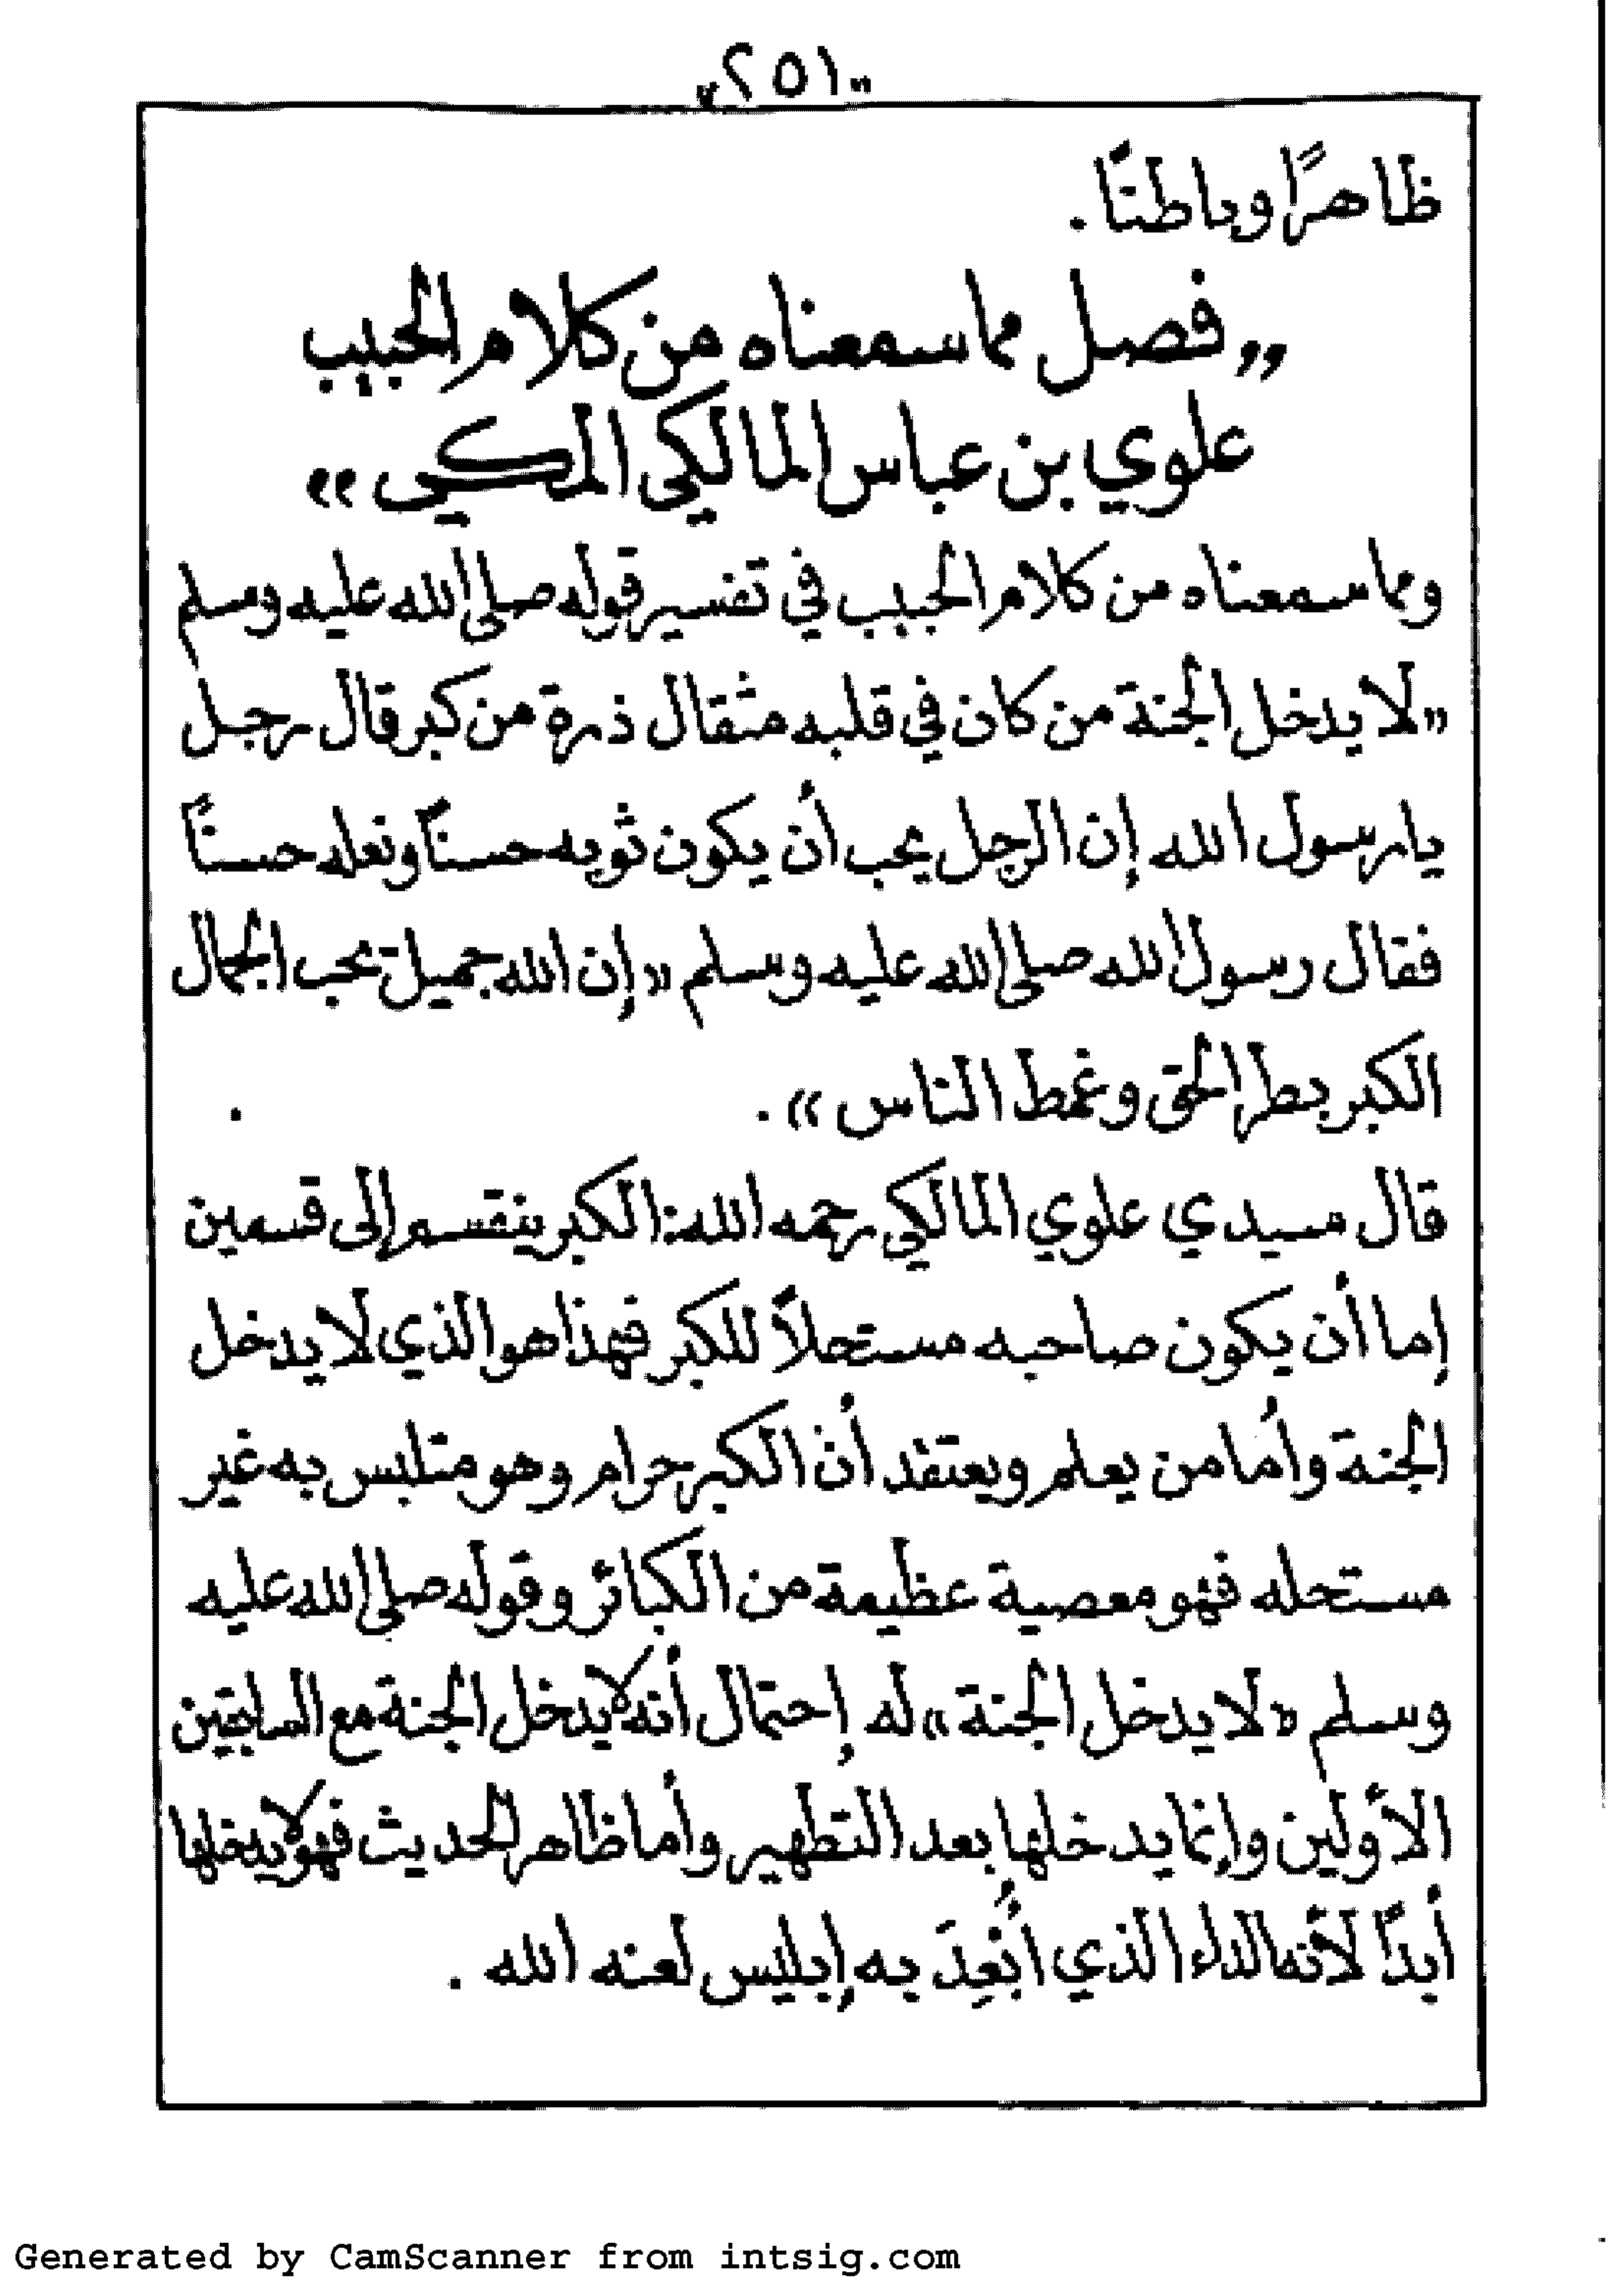 "٢٥١"
ظاهرًا وباطنًا .
,,فصل مما سمعناه من كلام الحبيب
علوي بن عباس المالكي المكي,,
ومما سمعناه من كلام الحبيب في تفسير قوله صلى الله عليه وسلم
«لا يدخل الجنة من كان في قلبه مثقال ذرة من كبر قال رجل
يا رسول الله إن الرجل يحب أن يكون ثوبه حسنًا ونعله حسنًا
فقال رسول الله صلى الله عليه وسلم «إن الله جميل يحب الجمال
الكبر بطر الحق وغمط الناس» .
قال سيدي علوي المالكي رحمه الله: الكبر ينقسم إلى قسمين
إما أن يكون صاحبه مستحلاً للكبر فهذا هو الذي لا يدخل
الجنة وأما من يعلم ويعتقد أن الكبر حرام وهو متلبس به غير
مستحله فهو معصية عظيمة من الكبائر وقوله صلى الله عليه
وسلم «لا يدخل الجنة» له إحتمال أنه لا يدخل الجنة مع السابقين
الأولين وإنما يدخلها بعد التطهير وأما ظاهر الحديث فهو لا يدخلها
أبدًا لأنه الداء الذي أُبْعِدَ به إبليس لعنه الله .
Generated by CamScanner from intsig.com